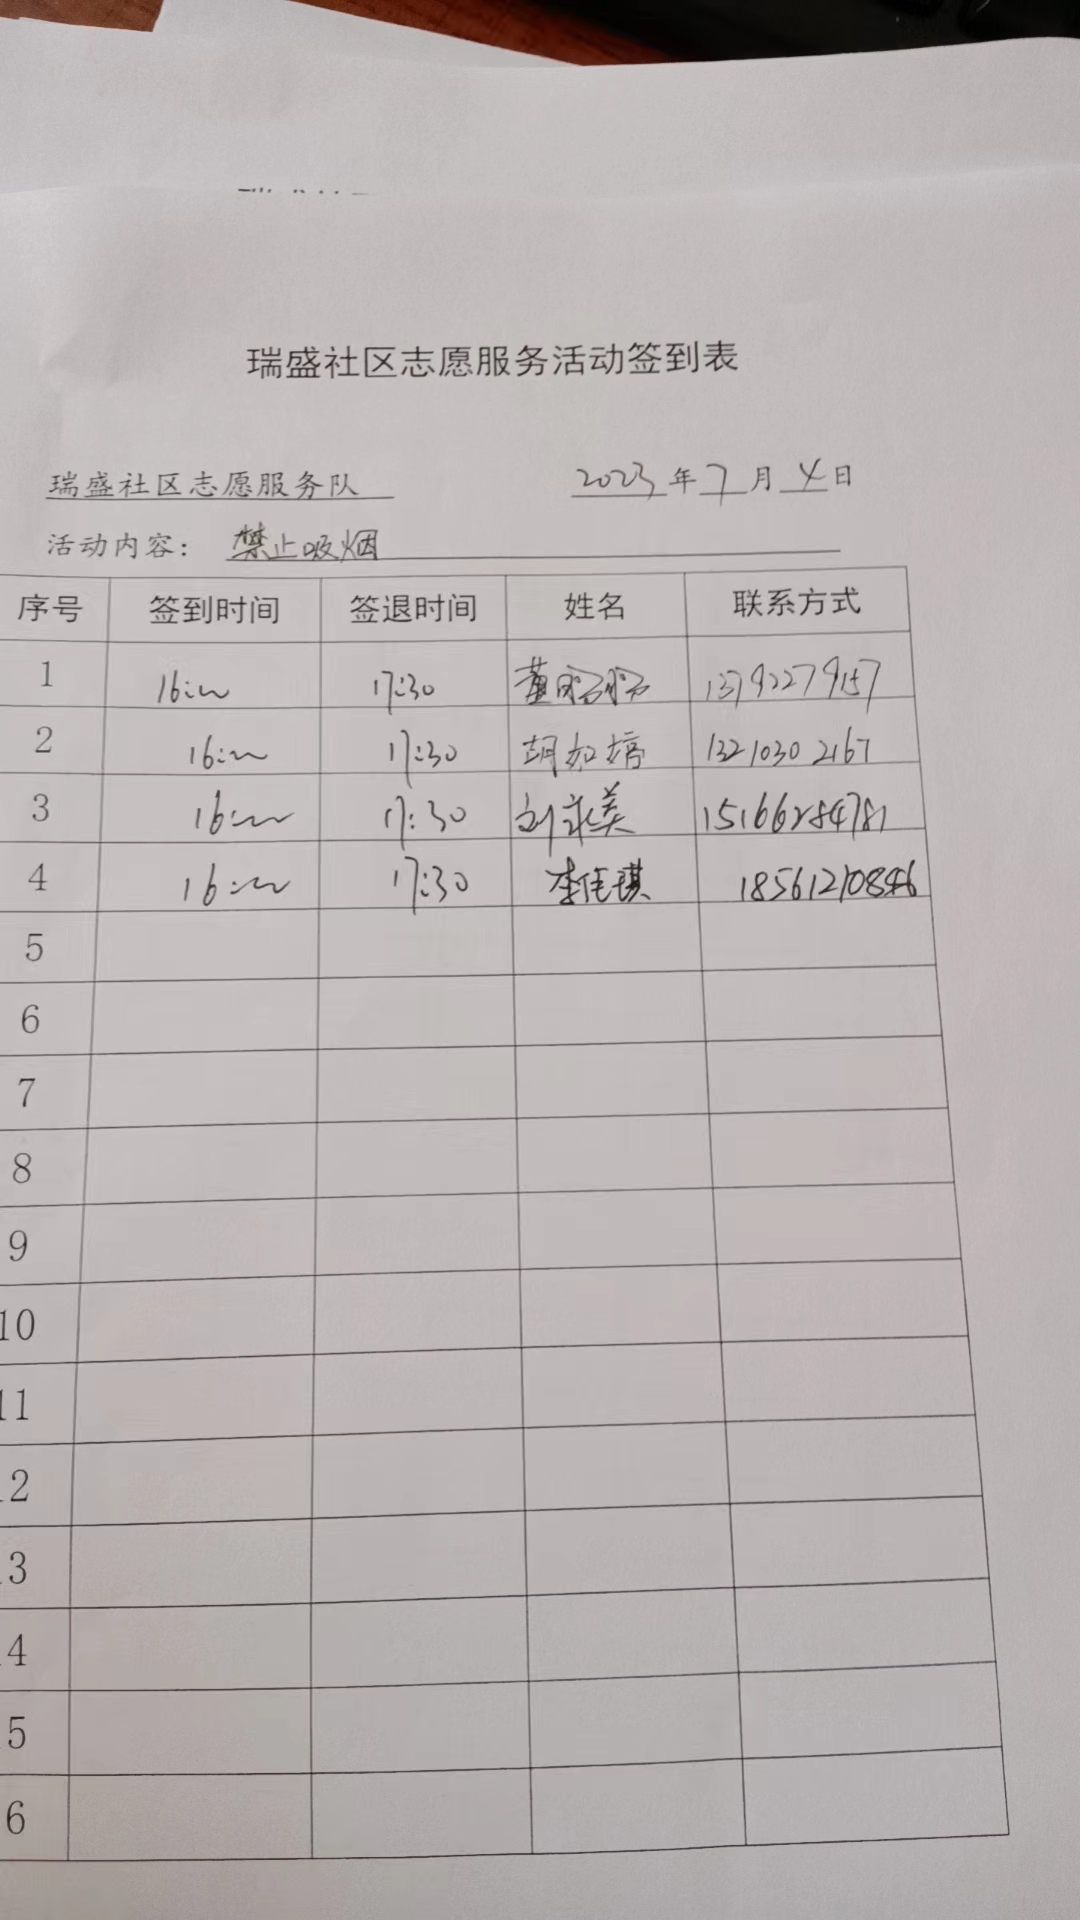 瑞盛社区志愿服务活动签到表
瑞盛社区志愿服务队 2023年7月4日
活动内容: 禁止吸烟
序号 签到时间 签退时间 姓名 联系方式
1 16:00 17:30 董 13792279157
2 16:00 17:30 胡如婷 13210302167
3 16:00 17:30 刘永美 15166284781
4 16:00 17:30 李佳琪 18561210846
5
6
7
8
9
10
11
12
13
14
15
16